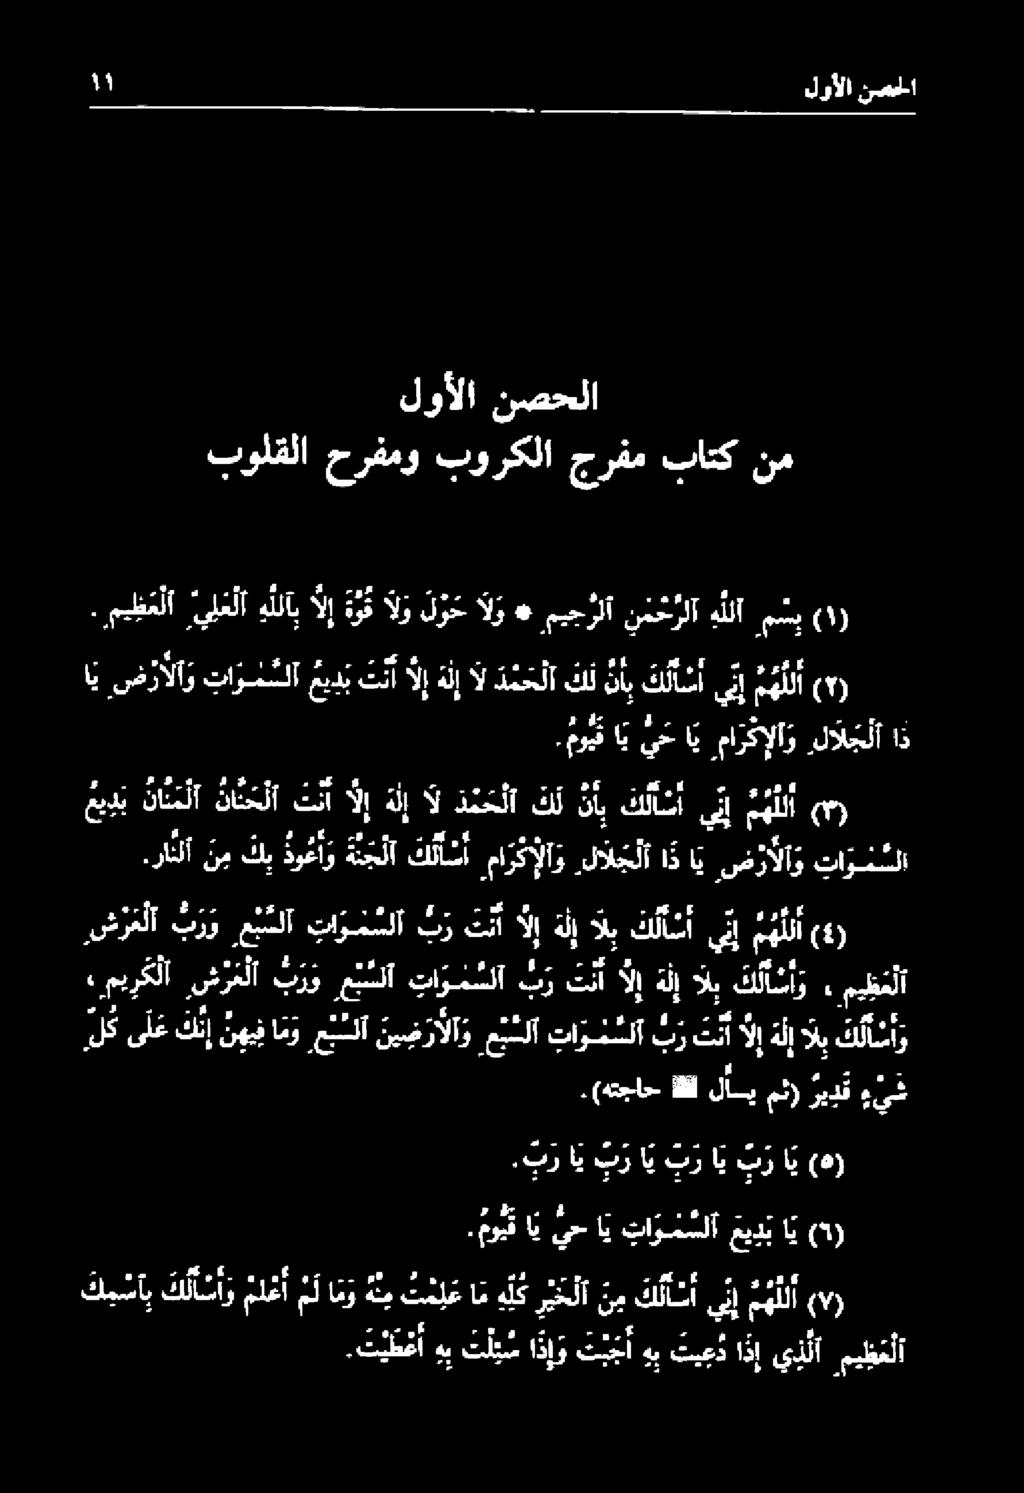 الحصن الأول ١١
الحصن الأول
من كتاب مفرج الكروب ومفرح القلوب
(١) بِسْمِ ٱللهِ ٱلرَّحْمَنِ ٱلرَّحِيمِ * وَلاَ حَوْلَ وَلاَ قُوَّةَ إِلاَّ بِٱللهِ ٱلْعَلِيِّ ٱلْعَظِيمِ.
(٢) أَللَّهُمَّ إِنِّي أَسْأَلُكَ بِأَنَّ لَكَ ٱلْحَمْدَ لاَ إِلَهَ إِلاَّ أَنْتَ بَدِيعُ ٱلسَّمَـوَاتِ وَٱلأَرْضِ يَا
ذَا ٱلْجَلاَلِ وَٱلإِكْرَامِ يَا حَيُّ يَا قَيُّومُ.
(٣) أَللَّهُمَّ إِنِّي أَسْأَلُكَ بِأَنَّ لَكَ ٱلْحَمْدَ لاَ إِلَهَ إِلاَّ أَنْتَ ٱلْحَنَّانُ ٱلْمَنَّانُ بَدِيعُ
ٱلسَّمَـوَاتِ وَٱلأَرْضِ يَا ذَا ٱلْجَلاَلِ وَٱلإِكْرَامِ أَسْأَلُكَ ٱلْجَنَّةَ وَأَعُوذُ بِكَ مِنَ ٱلنَّارِ.
(٤) أَللَّهُمَّ إِنِّي أَسْأَلُكَ بِلاَ إِلَهَ إِلاَّ أَنْتَ رَبُّ ٱلسَّمَـوَاتِ ٱلسَّبْعِ وَرَبُّ ٱلْعَرْشِ
ٱلْعَظِيمِ، وَأَسْأَلُكَ بِلاَ إِلَهَ إِلاَّ أَنْتَ رَبُّ ٱلسَّمَـوَاتِ ٱلسَّبْعِ وَرَبُّ ٱلْعَرْشِ ٱلْكَرِيمِ،
وَأَسْأَلُكَ بِلاَ إِلَهَ إِلاَّ أَنْتَ رَبُّ ٱلسَّمَـوَاتِ ٱلسَّبْعِ وَٱلأَرَضِينَ ٱلسَّبْعِ وَمَا فِيهِنَّ إِنَّكَ عَلَى كُلِّ
شَيْءٍ قَدِيرٌ (ثم يسأل حاجته).
(٥) يَا رَبِّ يَا رَبِّ يَا رَبِّ يَا رَبِّ.
(٦) يَا بَدِيعَ ٱلسَّمَـوَاتِ يَا حَيُّ يَا قَيُّومُ.
(٧) أَللَّهُمَّ إِنِّي أَسْأَلُكَ مِنَ ٱلْخَيْرِ كُلِّهِ مَا عَلِمْتُ مِنْهُ وَمَا لَمْ أَعْلَمْ وَأَسْأَلُكَ بِٱسْمِكَ
ٱلْعَظِيمِ ٱلَّذِي إِذَا دُعِيتَ بِهِ أَجَبْتَ وَإِذَا سُئِلْتَ بِهِ أَعْطَيْتَ.